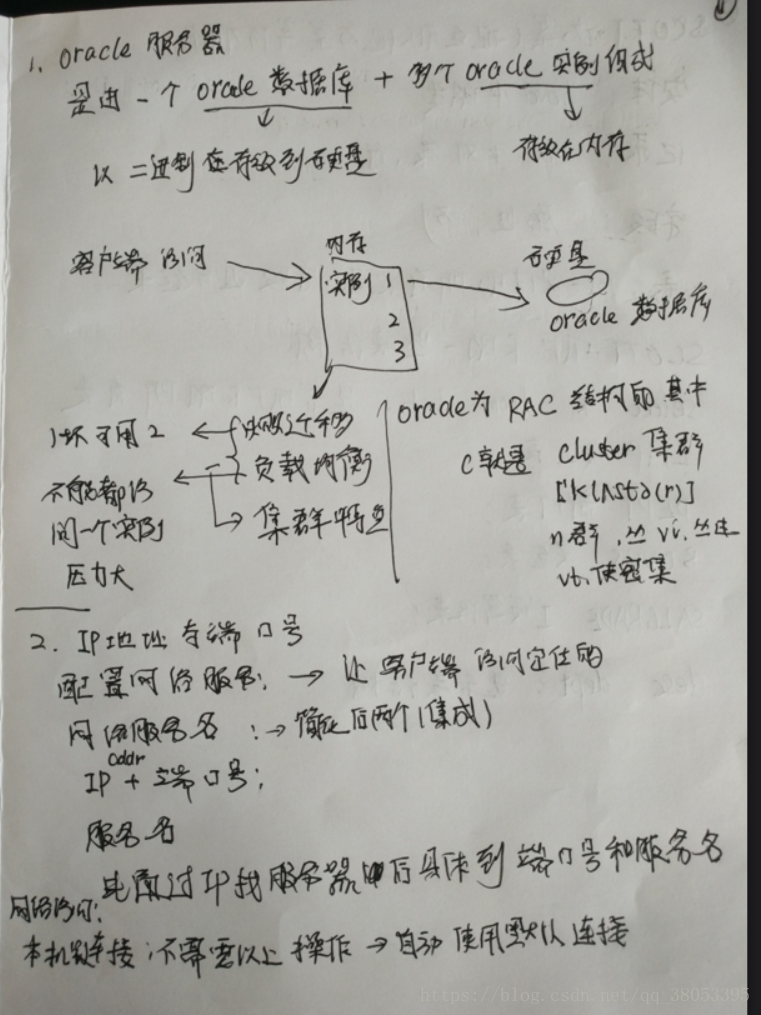 1. oracle 服务器
是由一个 oracle 数据库 + 多个 oracle 实例组成
以二进制在存放到硬盘
存放在内存
客户端访问
内存
实例 1
2
3
硬盘
oracle 数据库
失败迁移
1坏可用2
负载均衡
不能都访
问一个实例
压力大
集群特点
oracle为 RAC 结构的 其中
C就是 cluster 集群
n群, 丛 vi.丛生
vt.使密集
2. IP地址与端口号
配置网络服务: → 让客户端访问定位的
网络服务名 :→ 简化后两个(集成)
IP addr + 端口号;
服务名
先通过IP找服务器 后具体到端口号和服务名
网络访问:
本机连接:不需要以上操作 → 自动使用默认连接
https://blog.csdn.net/qq_38053395